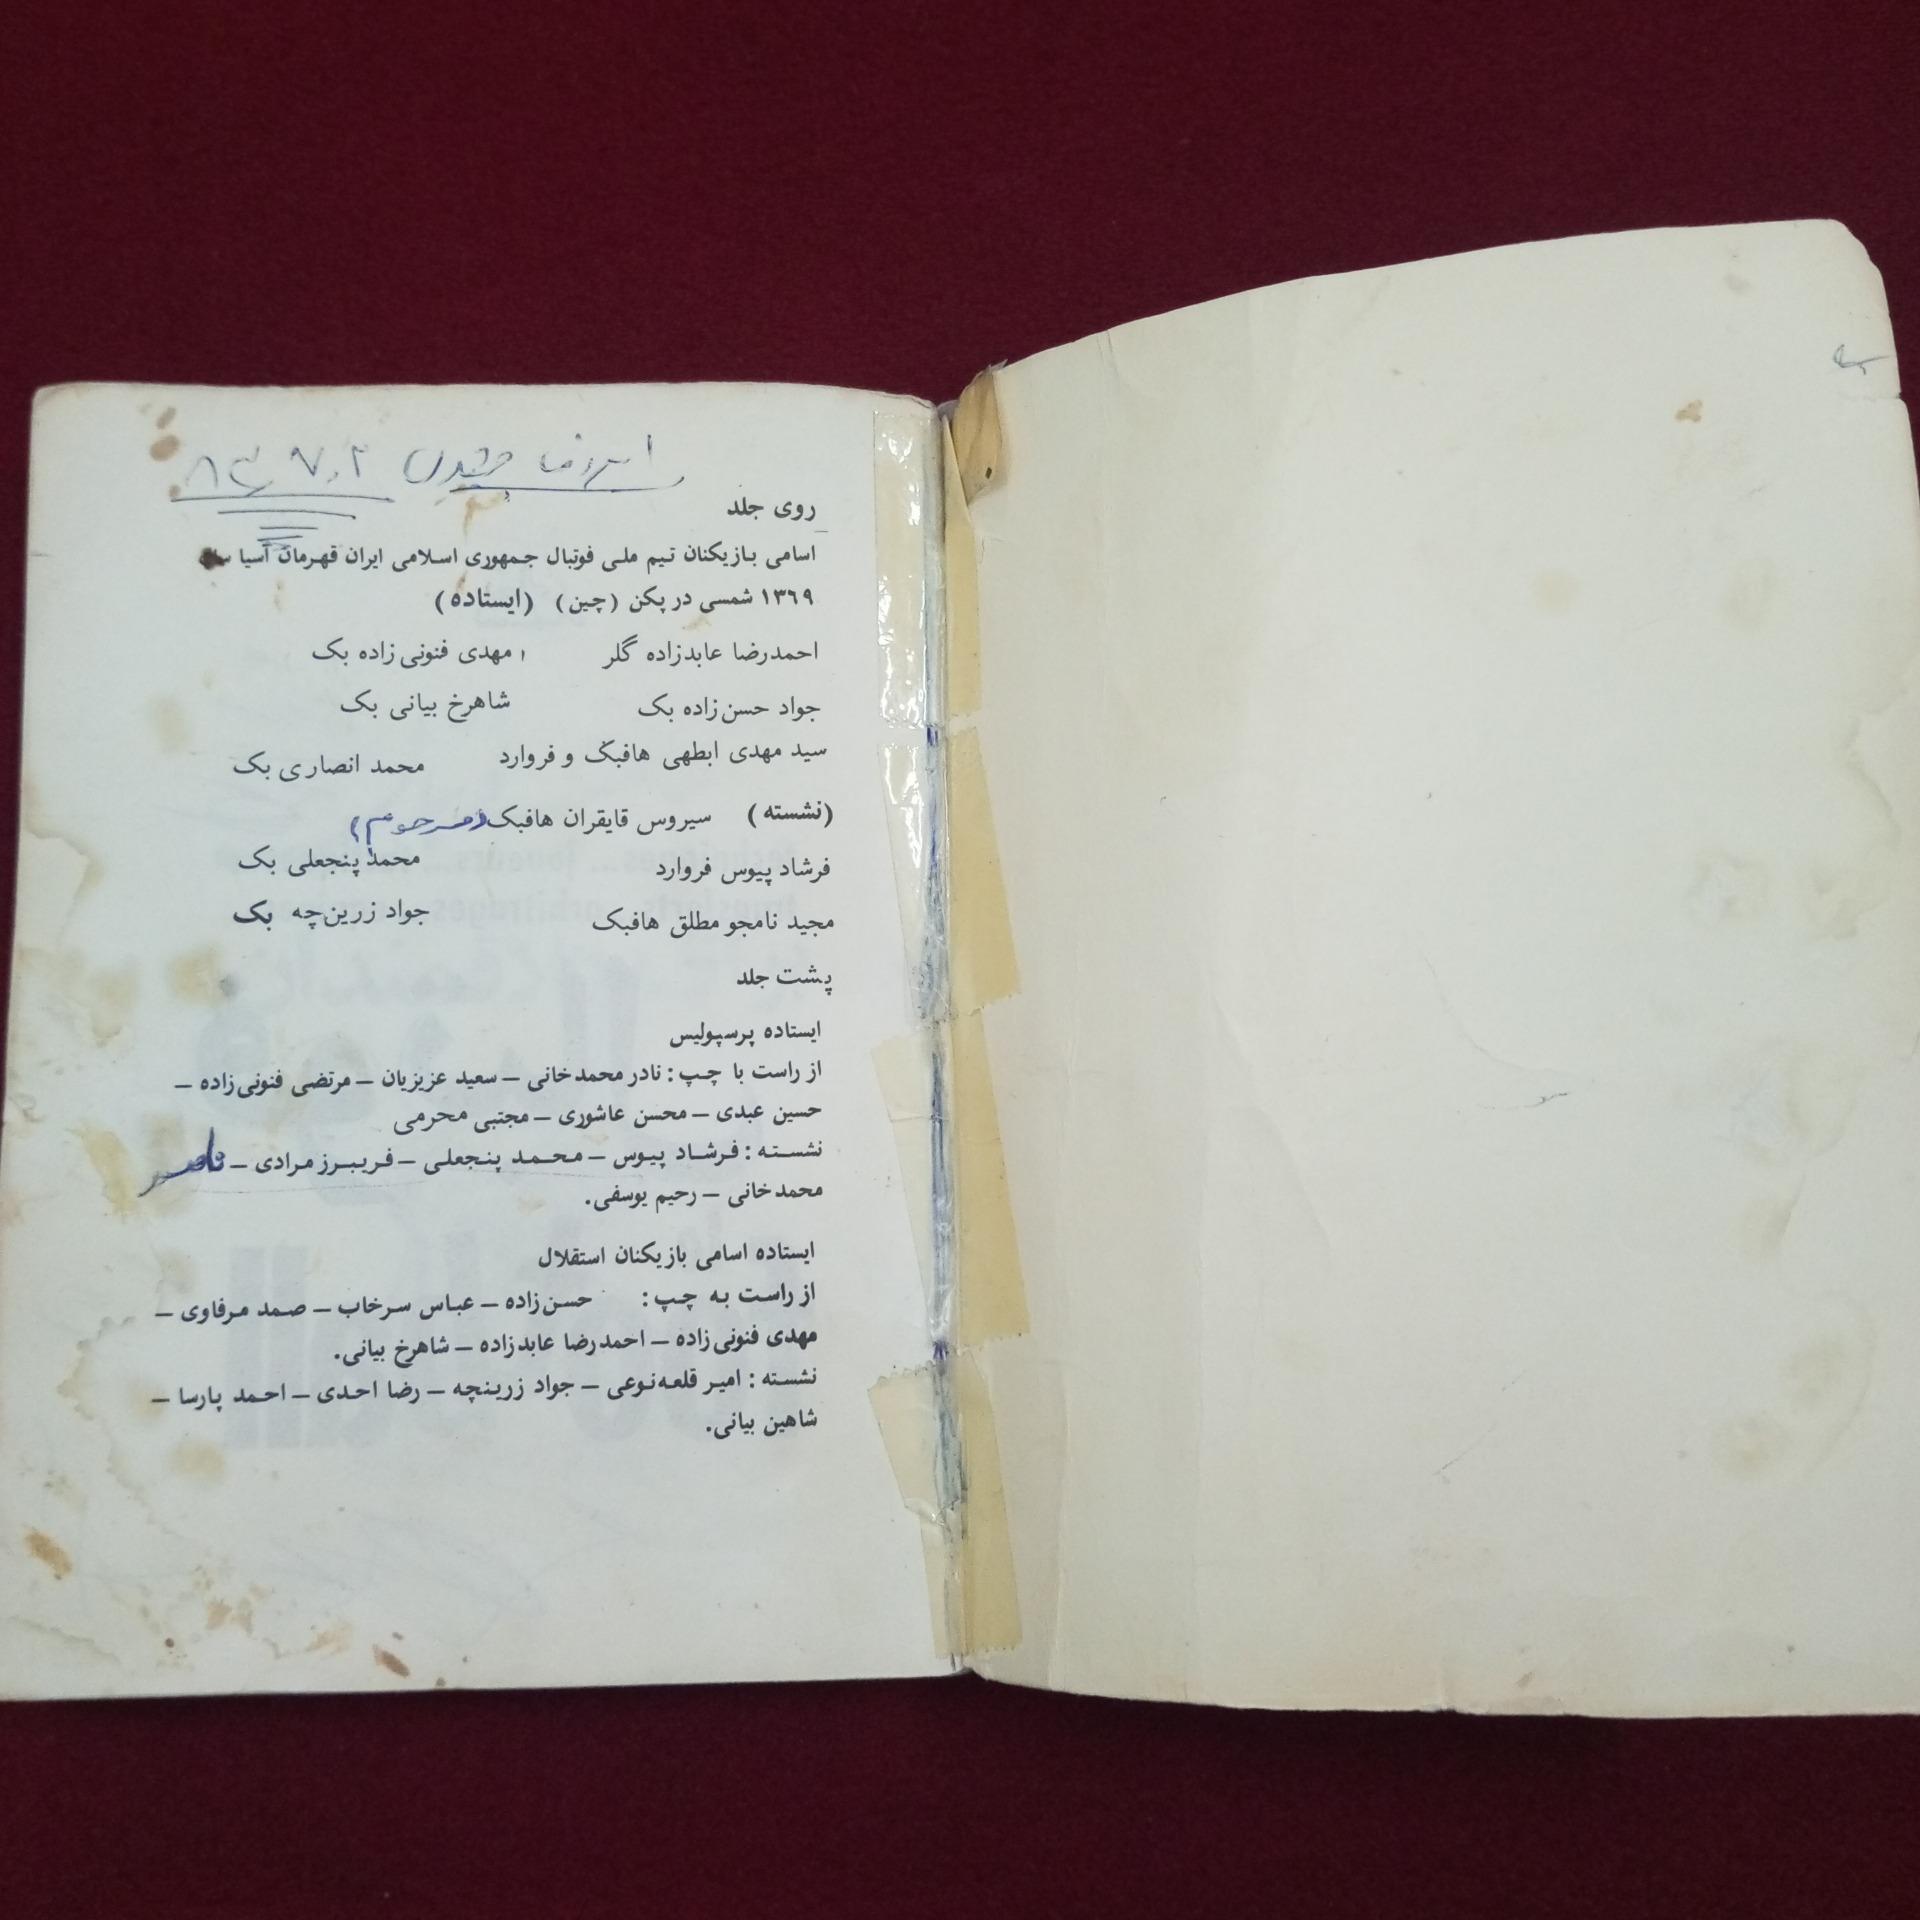 روی جلد
اسامی بازیکنان تیم ملی فوتبال جمهوری اسلامی ایران قهرمان آسیا سال
۱۳۶۹ شمسی در پکن (چین) (ایستاده)
احمدرضا عابدزاده گلر مهدی فنونی‌زاده بک
جواد حسن‌زاده بک شاهرخ بیانی بک
سید مهدی ابطهی هافبک و فروارد محمد انصاری بک
(نشسته) سیروس قایقران هافبک (مرحوم)
فرشاد پیوس فروارد محمد پنجعلی بک
مجید نامجو مطلق هافبک جواد زرین‌چه بک
پشت جلد
ایستاده پرسپولیس
از راست با چپ: نادر محمدخانی – سعید عزیزیان – مرتضی فنونی‌زاده –
حسین عبدی – محسن عاشوری – مجتبی محرمی
نشسته: فرشاد پیوس – محمد پنجعلی – فریبرز مرادی – ناصر
محمدخانی – رحیم یوسفی.
ایستاده اسامی بازیکنان استقلال
از راست به چپ: حسن‌زاده – عباس سرخاب – صمد مرفاوی –
مهدی فنونی‌زاده – احمدرضا عابدزاده – شاهرخ بیانی.
نشسته: امیر قلعه‌نوعی – جواد زرینچه – رضا احدی – احمد پارسا –
شاهین بیانی.